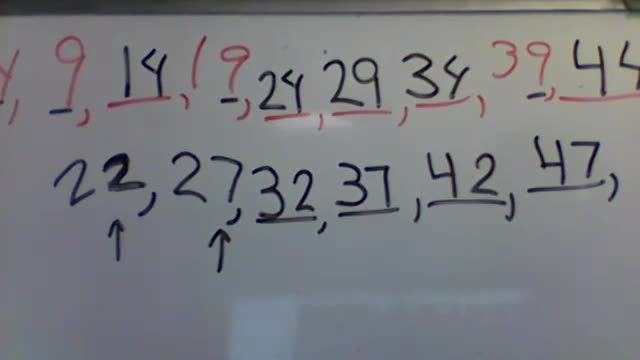 4, 9, 14, 19, 24, 29, 34, 39, 44
22, 27, 32, 37, 42, 47,